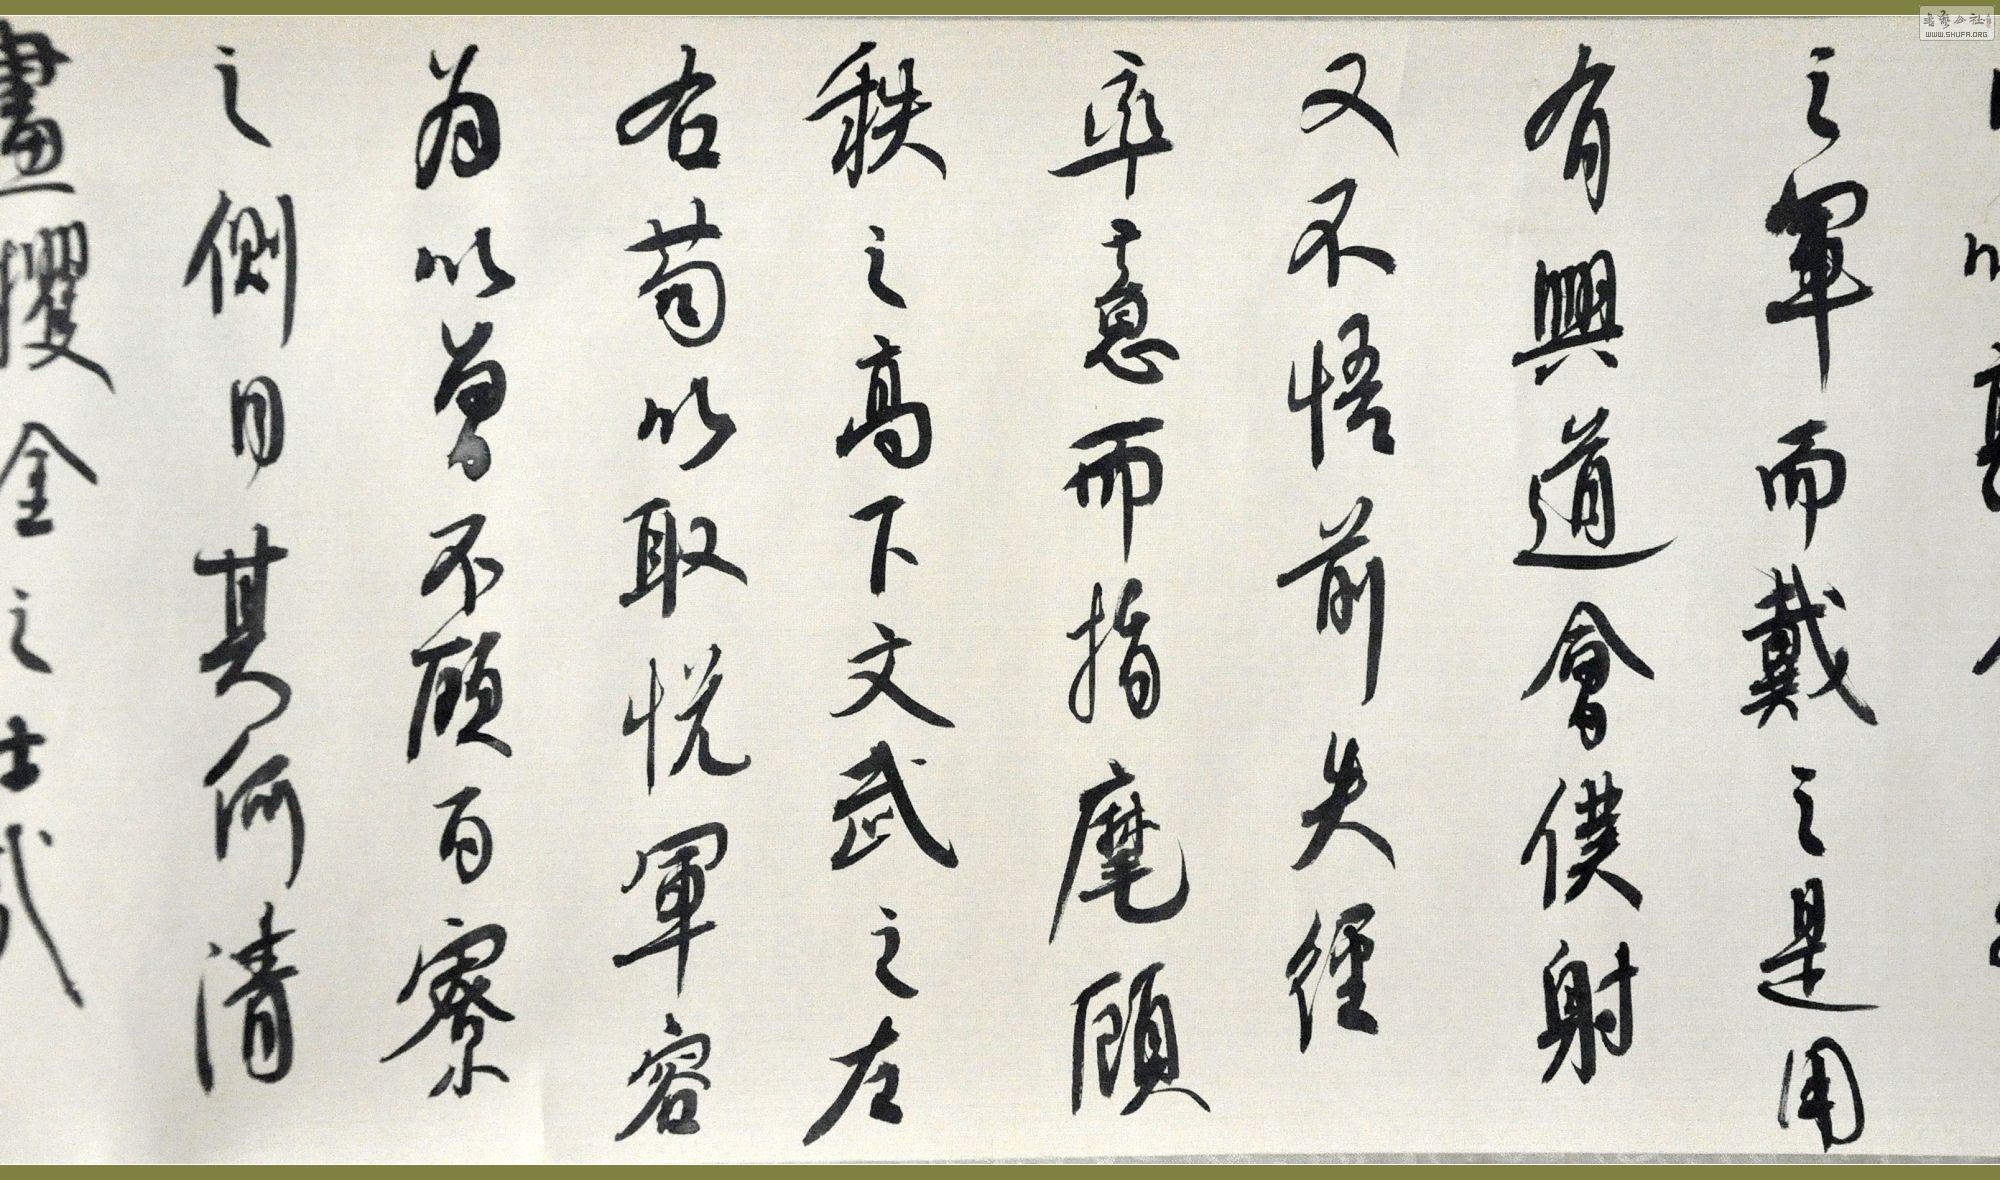 之軍而戴之是用
有興道會僕射
又不悟前失徑
率意而指麾顧
秩之高下文武之左
右苟以取悅軍容
為以曾不顧百寮
之側目其何清
晝攫金之士哉
書藝公社
WWW.SHUFA.ORG